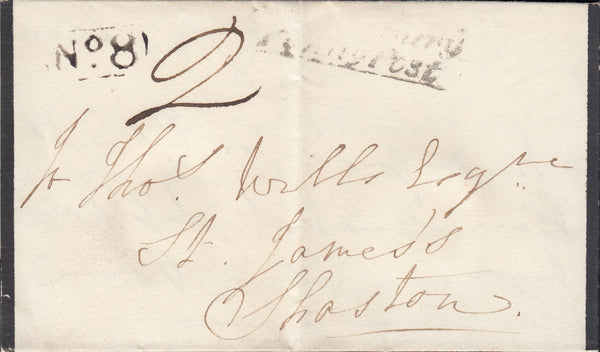 No. 8
2
Penny Post
Thos. Wills Esqre
St. James's
Shaston.